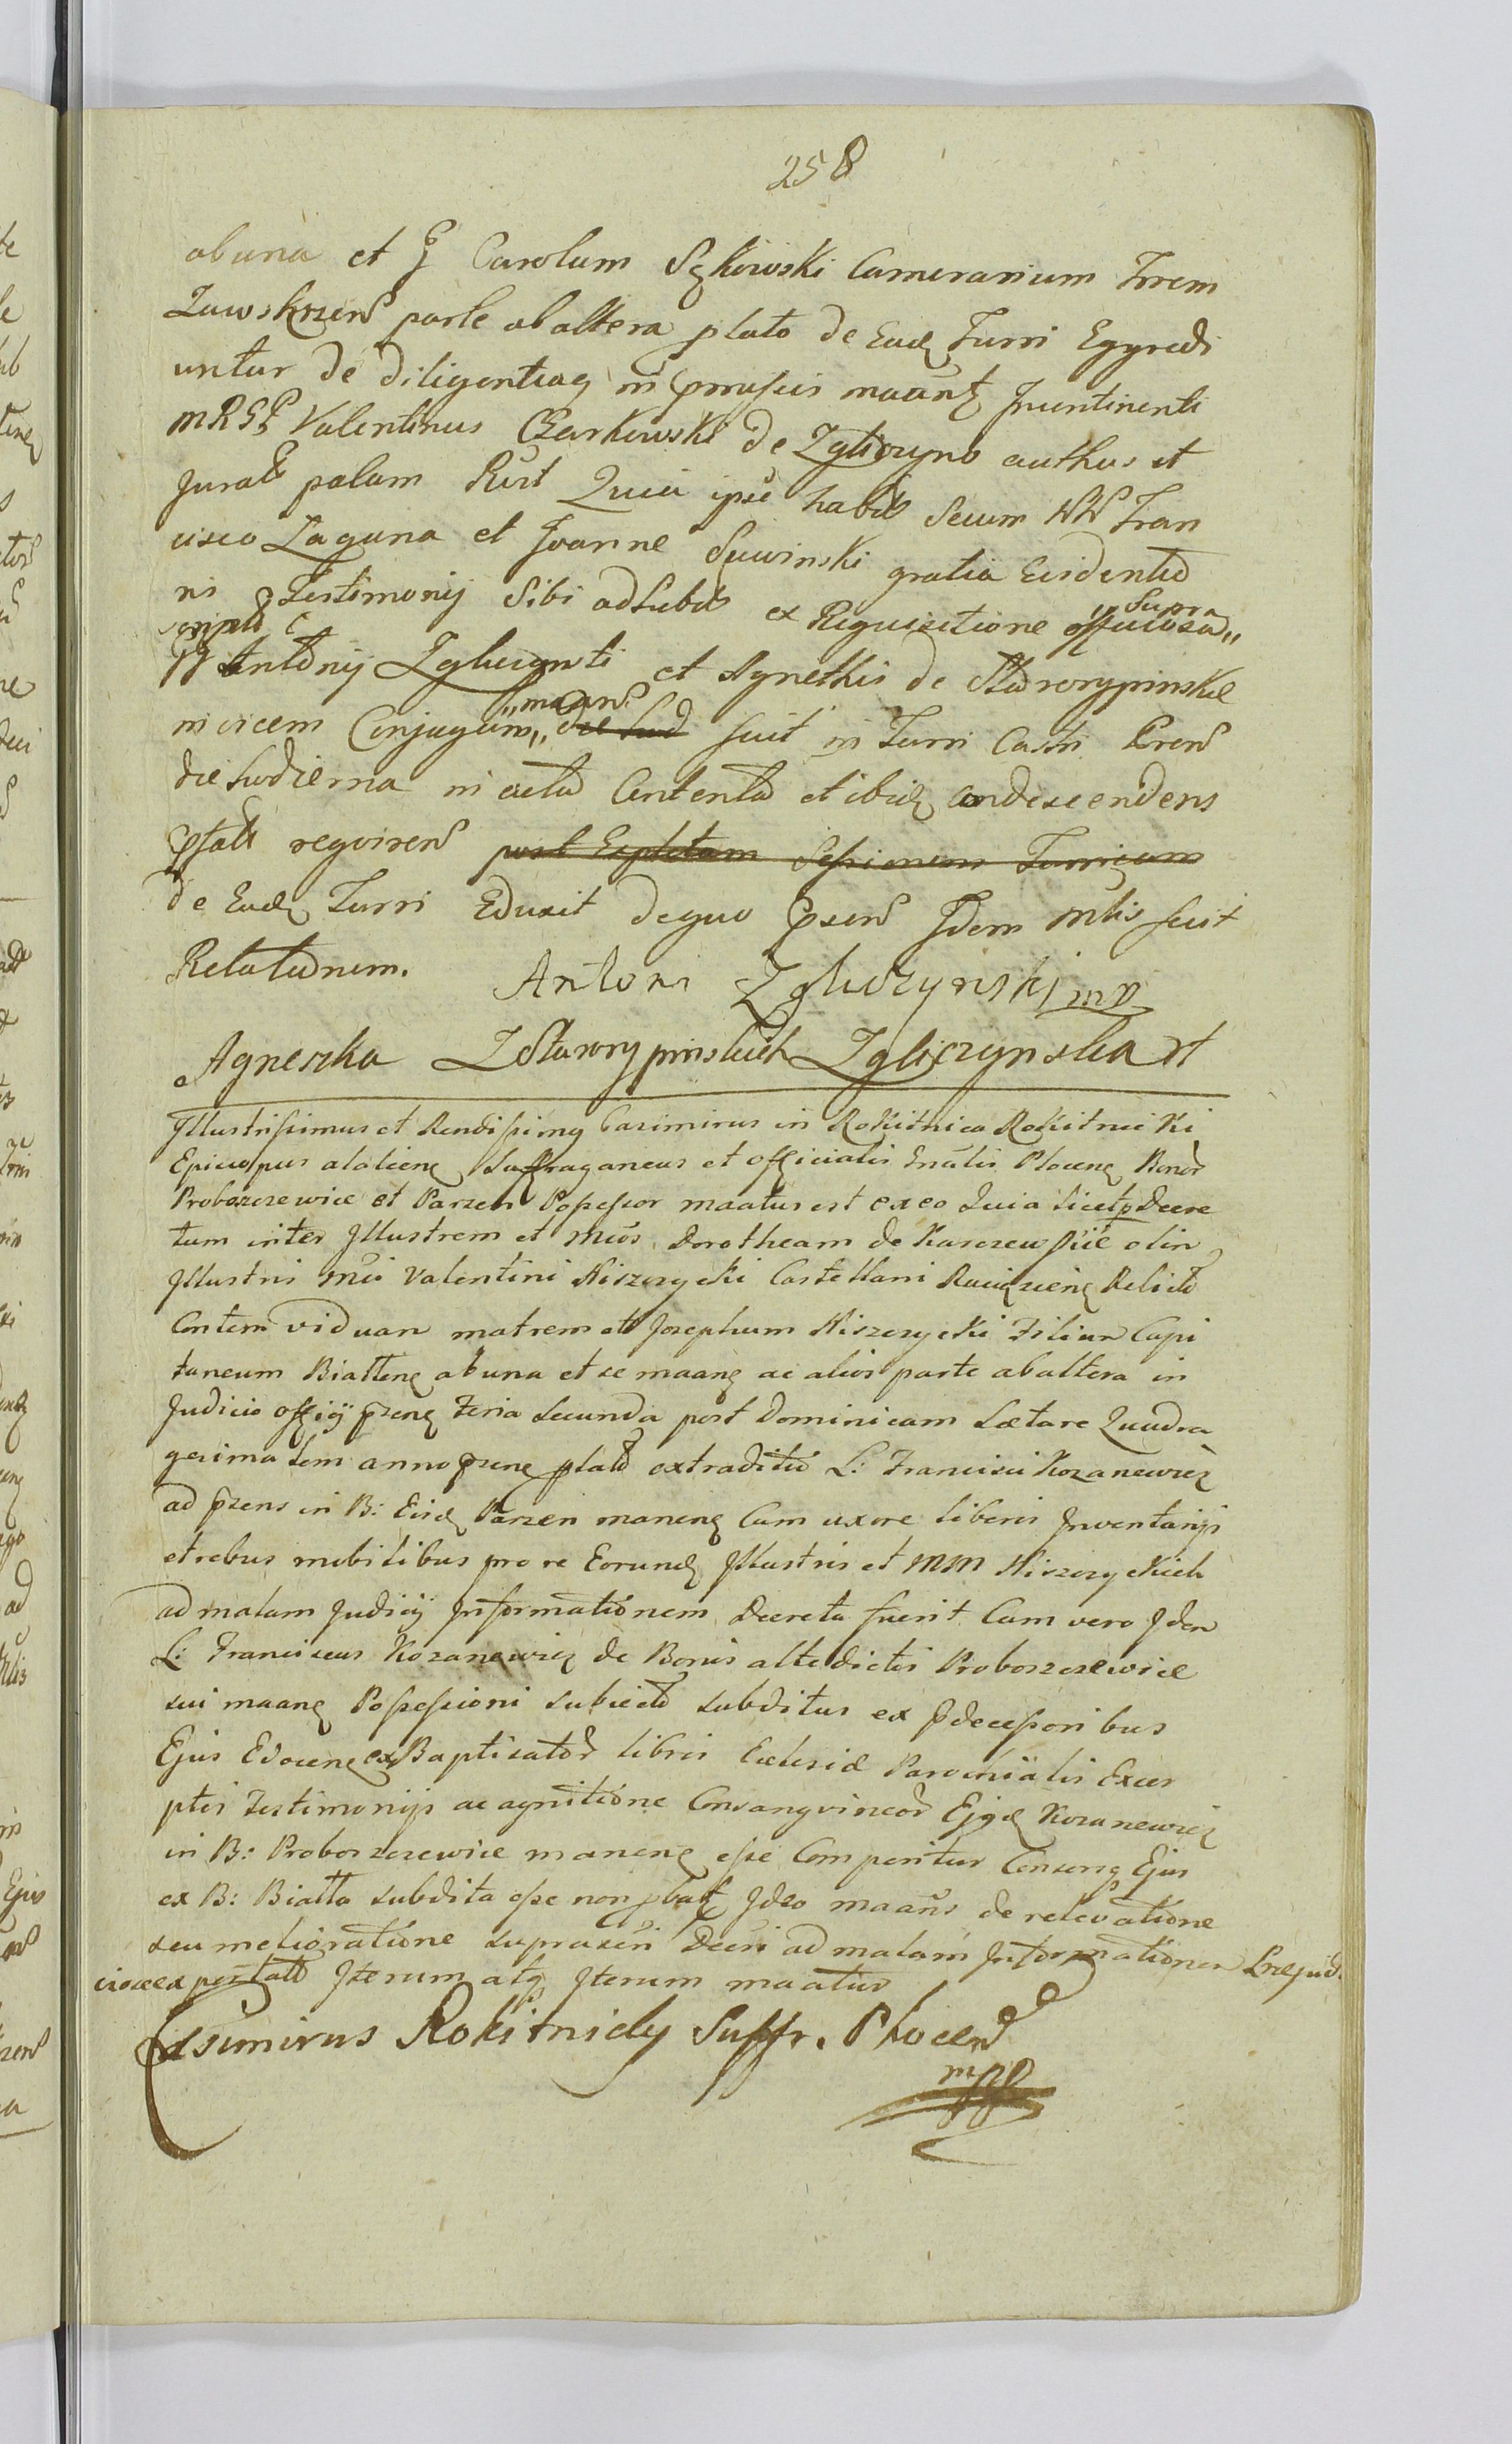 258
ab una et G Carolum Sękowski Camerarium Trrem
Zawskrzens parte ab altera plato de Eadq Turri Egyredi
untur de diligentiaq in pmissis maantq Incontinenti
MRGP Valentinus Czarkowski de Zgliczyno authus et
Juratq palam Rlit Quia ipse habit Secum NN Fran
cisco Laguna et Joanne Suwinski gratia Evidentio
ris Testimonij Sibi adhibit ex Requisitione officiosa „Supra
scripto
G Antonij Zgliczynski et Agnethis de Starorypinskie
invicem Conjugum „maans die hod fuit in Turri Castri Pren
die hodierna in actu Contenta et ibidq condescendens
psatt reqvirens post Expletam Sessionem Turrigam
de Eadq Turri Eduxit de quo psens Idem Mlis fecit
Relationem. Antoni Zgliczynski mp
Agneszka Z Starorypinskich Zgliczynska rt
Illustrissimus et Rendissimq Casimirus in Rokitnica Rokitnicki
Episcopus alaliene Suffraganeus et officialis Gnalis Plocenq Bonor
Proboszczewice et Parzen Possessor maatus est ex eo Quia licet p Decre
tum inter Illustrem et Mcos Dorotheam de Karczewskie olim
Illustris Mci Valentini Hiszczycki Castellani Raciązenq Relicto
Contem viduam matrem et Josephum Hiszczycki Filium Capi
taneum Biattenq ab una et se maanq ac alios parte ab altera in
Judicio officij przenq Feria Secunda post Dominicam Lætare Quadra
gesimalem anno przenq plato extraditio L: Francisci Kozanewicz
ad przens in B: Eisdq Parzen manenq Cum uxore liberis Inventarijs
et rebus mobilibus pro re Eorundq Illustris et MM Hiszczyckich
ad malam Judicij Informationem Decreta fuerit Cum vero Idem
L: Franciscus Kozanewicz de Bonis alte dictis Proboszczewice
sui maanq Possessioni subiecto subditus ex pdecessoribus
Ejus Edocenq ex Baptisator libris Ecclesiæ Parochialis Excer
ptis Testimonijs ac agnitione Consangvineor Ejqd Kozanewicz
in B: Proboszczewice manenq esse Comperitur Consorq Ejus
ex B: Biatta subdita esse non pbatq Ideo maans de relevatione
seu melioratione suprascri Decri ad malam Informationem Præjudi
ciose exportato Iterum atq Iterum maatur
Casimirus Rokitnicky Suffr. Plocens
mpp